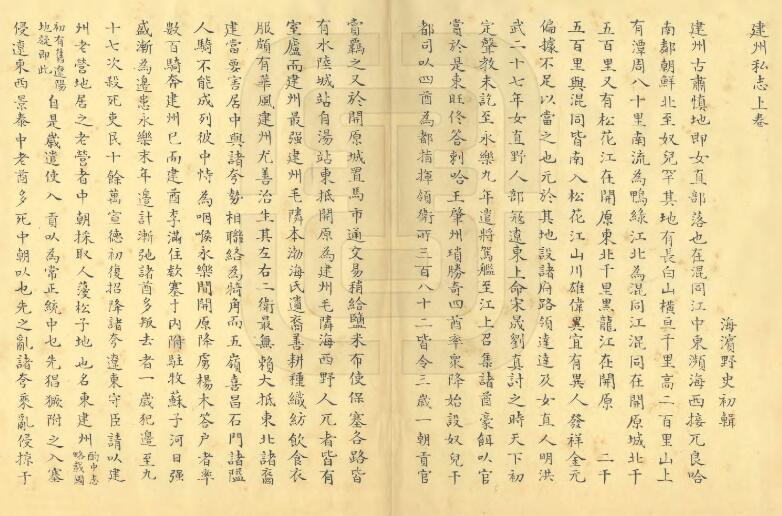 建州私志上卷
海濱野史初輯
建州古肅慎地即女直部落也在混同江中東瀕海西接兀良哈
南鄰朝鮮北至奴兒罕其地有長白山橫亘千里高二百里山上
有潭周八十里南流為鴨綠江北為混同江混同在開原城北千
五百里又有松花江在開原東北千里黑龍江在開原 二千
五百里與混同皆南入松花江山川雄偉異宜有異人發祥金元
偏據不足以當之也元於其地設諸府路領達達及女直人明洪
武二十七年女直野人部寇遼東上命宋晟劉真討之時天下初
定聲教未訖至永樂九年遣將駕艦至江上召集諸酋豪餌以官
賞於是東旺佟答剌哈王肇州瑣勝奇四酋率衆降始設奴兒干
都司以四酋為都指揮領衛所三百八十二皆令三歲一朝貢官
賞羈之又於開原城置馬市通交易稍給鹽米布使保塞各路皆
有水陸城站自湯站東抵開原為建州毛隣海西野人兀者皆有
室廬而建州最强建州毛隣本渤海氏遺裔善耕種織紡飲食衣
服頗有華風建州尤善治生其左右二衛最無賴大抵東北諸裔
建當要害居中與諸夸勢相聯絡為犄角而五嶺喜昌石門諸隘
人騎不能成列彼中恃為咽喉永樂間開原降虜楊木答户者率
數百騎奔建州巳而建酋李滿住欵塞于内附駐牧蘇子河日强
盛漸為邊患永樂末年邊計漸弛諸酋多叛去者一歲犯邊至九
十七次殺死吏民十餘萬宣德初復招降諸夸遼東守臣請以建
州老營地居之老營者中朝採取人葠松子地也名東建州酌中志略載國
初有舊遼陽地疑即此自是歲遣使入貢以為常正統中也先猖獗附之入塞
侵遼東西景泰中老酋多死中朝以也先之亂諸夸乘亂侵掠于